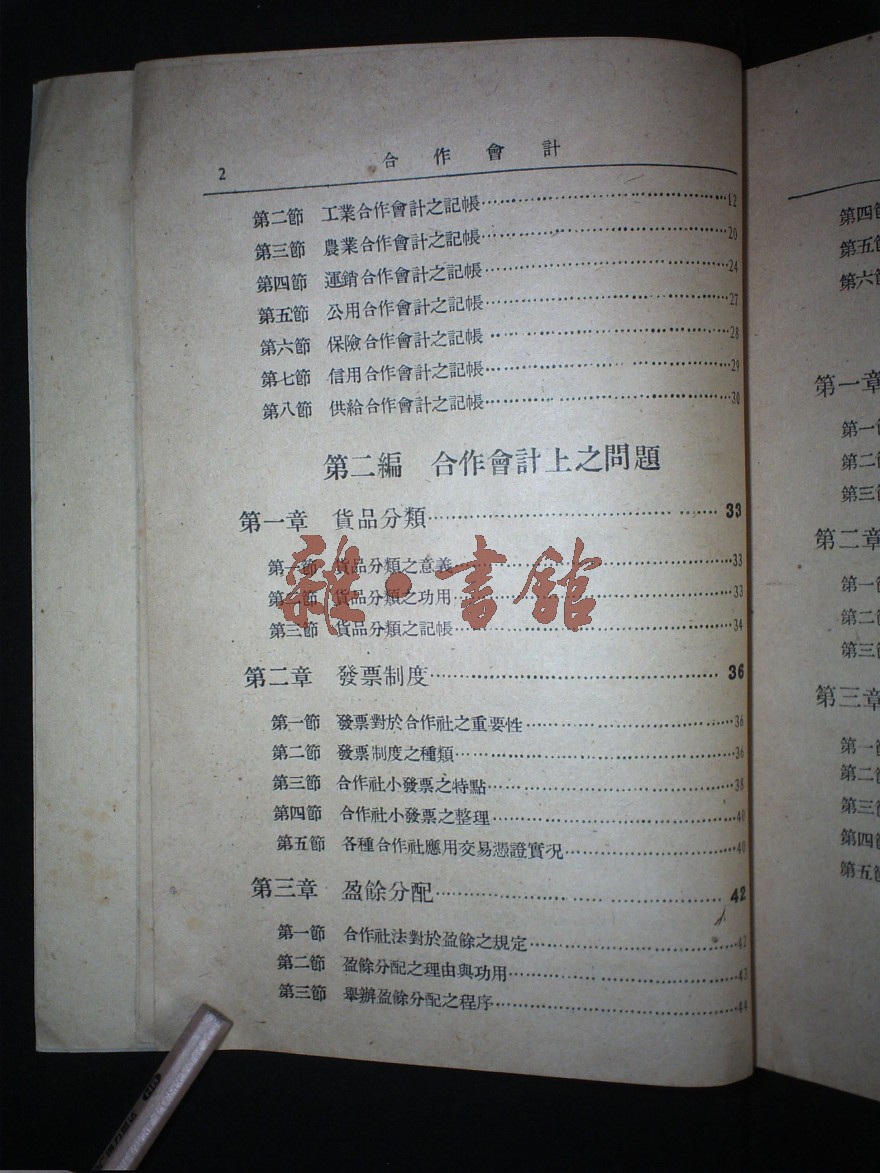 2 合作會計
第二節 工業合作會計之記帳……12
第三節 農業合作會計之記帳……20
第四節 運銷合作會計之記帳……24
第五節 公用合作會計之記帳……27
第六節 保險合作會計之記帳……28
第七節 信用合作會計之記帳……29
第八節 供給合作會計之記帳……30
第二編 合作會計上之問題
第一章 貨品分類……33
第一節 貨品分類之意義……33
第二節 貨品分類之功用……33
第三節 貨品分類之記帳……34
雜·書館
第二章 發票制度……36
第一節 發票對於合作社之重要性……36
第二節 發票制度之種類……36
第三節 合作社小發票之特點……38
第四節 合作社小發票之整理……40
第五節 各種合作社應用交易憑證實況……40
第三章 盈餘分配……42
第一節 合作社法對於盈餘之規定……42
第二節 盈餘分配之理由與功用……43
第三節 舉辦盈餘分配之程序……44
第四節
第五節
第六節
第一章
第一節
第二節
第三節
第二章
第一節
第二節
第三節
第三章
第一節
第二節
第三節
第四節
第五節